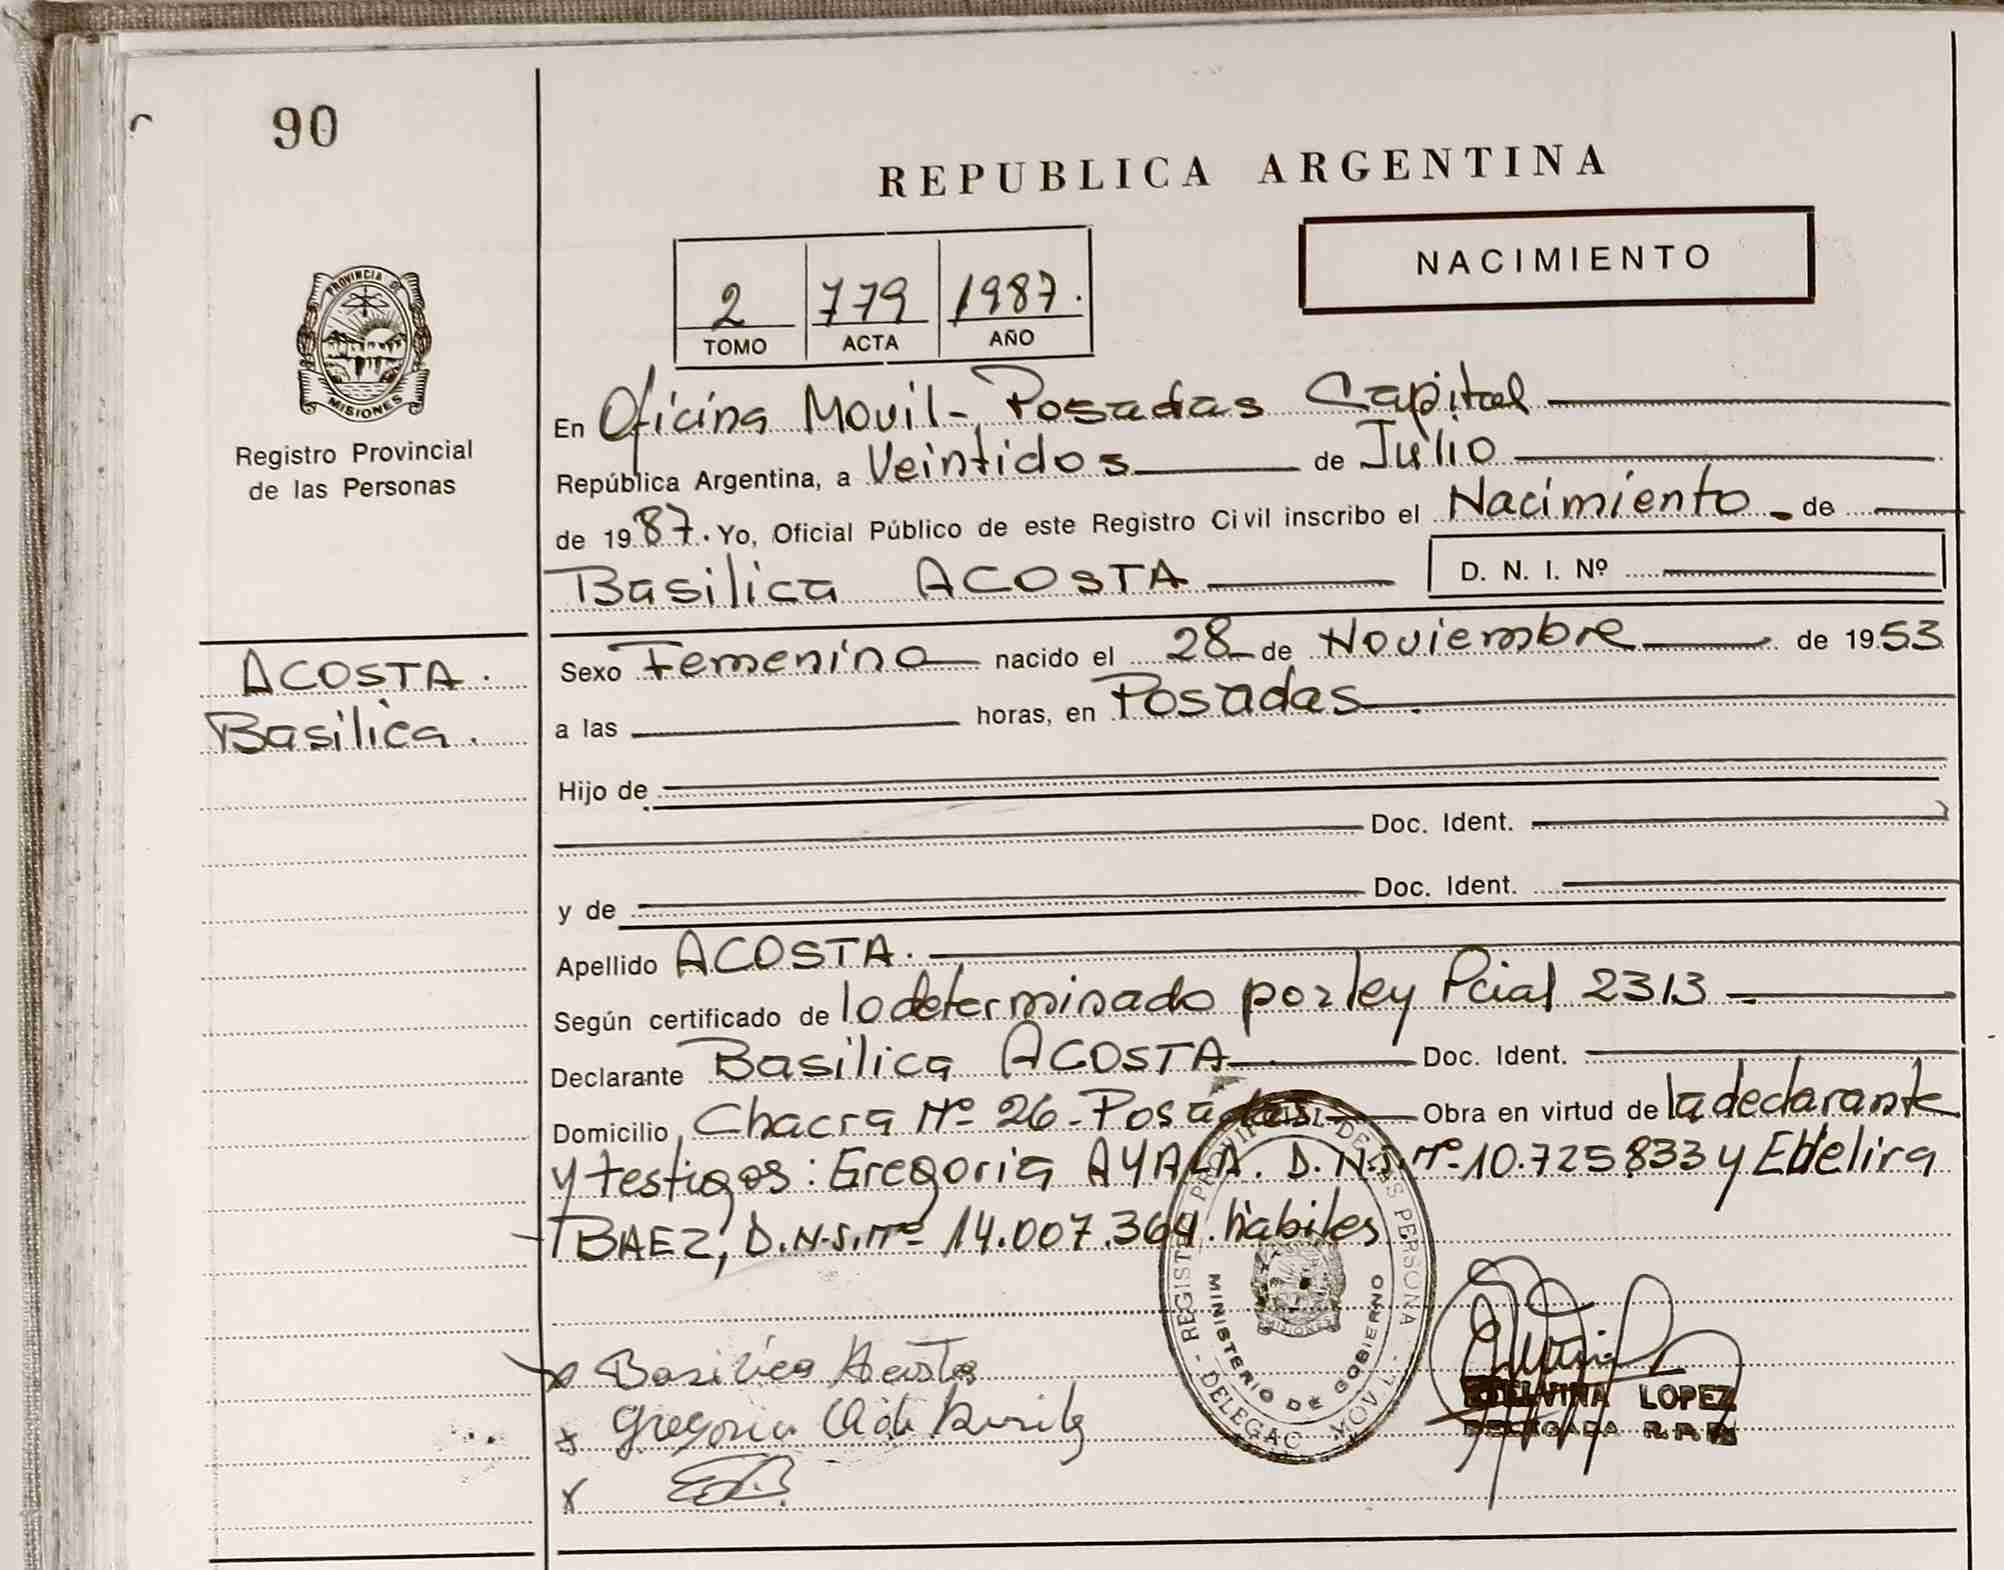 90
REPUBLICA ARGENTINA
NACIMIENTO
2 779 1987.
TOMO ACTA AÑO
PROVINCIA DE
MISIONES
Registro Provincial
de las Personas
En Oficina Movil - Posadas Capital
República Argentina, a Veintidos de Julio
de 1987. Yo, Oficial Público de este Registro Civil inscribo el Nacimiento de
Basilica ACOSTA D. N. I. Nº
ACOSTA.
Basilica.
Sexo Femenino nacido el 28 de Noviembre de 1953
a las horas, en Posadas
Hijo de
Doc. Ident.
y de Doc. Ident.
Apellido ACOSTA.
Según certificado de lo determinado por ley Pcial 2313
Declarante Basilica ACOSTA Doc. Ident.
Domicilio Chacra Nº 26 - Posadas Obra en virtud de la declarante
y testigos: Gregoria AYALA. D.N.I. Nº 10.725833 y Edelira
BAEZ, D.N.I. Nº 14.007.364. habiles
REGISTR PROVINCIAL DE LAS PERSONA - DELEGAC MOVIL -
MINISTERIO DE GOBIERNO
MISIONES
x Basilica Acosta
x Gregoria
x
LOPEZ
DELEGADA R.P.P.